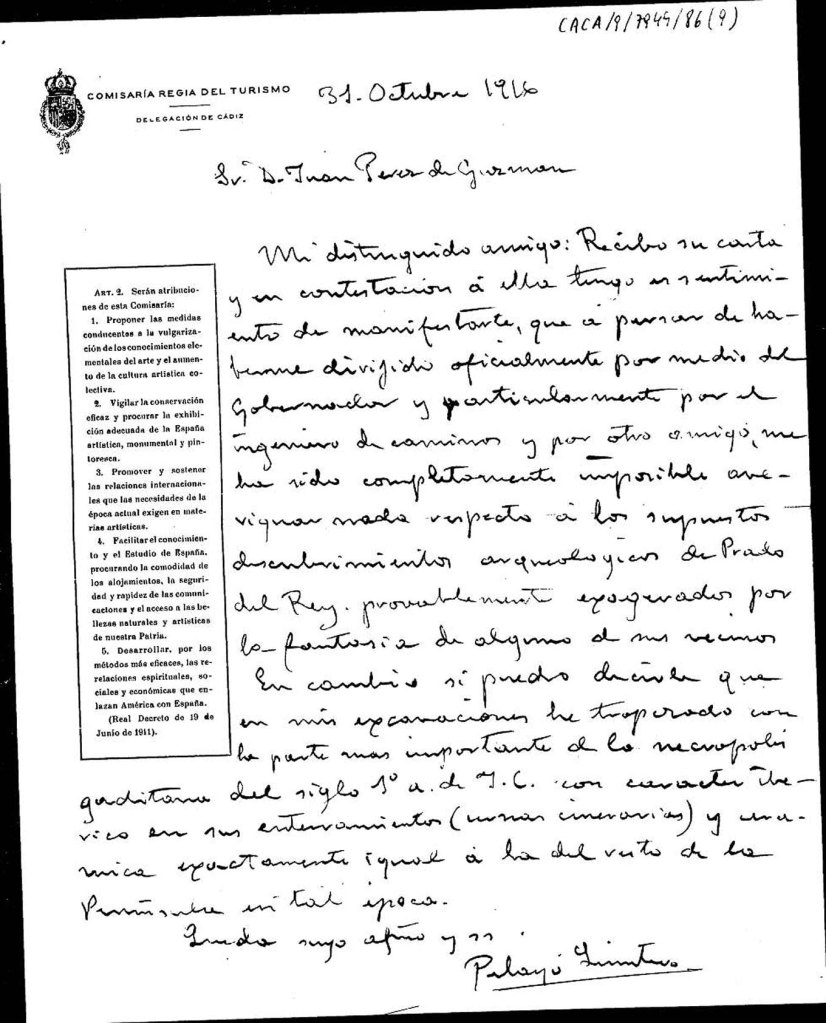 CACA/9/7949/86(9)
COMISARÍA REGIA DEL TURISMO
DELEGACIÓN DE CÁDIZ
31. Octubre 1916
Sr. D. Juan Perez de Guzman
Mi distinguido amigo: Recibo su carta
y en contestación á ella tengo el sentimi-
ento de manifestarte, que á pesar de ha-
berme dirijido oficialmente por medio del
Gobernador y particularmente por el
ingeniero de caminos y por otro amigo, me
ha sido completamente imposible ave-
riguar nada respecto á los supuestos
descubrimientos arqueologicos de Prado
del Rey. provablemente exagerados por
la fantasia de alguno de sus vecinos
En cambio si puedo decirle que
en mis excavaciones he tropezado con
la parte mas importante de la necropolis
gaditana del siglo 1º a. de J.C. con caracter ibe-
rico en sus enterramientos (urnas cinerarias) y cera-
mica exactamente igual á la del resto de la
Peninsula en tal epoca.
Queda suyo afmo y ss.
Pelayo Quintero
ART. 2. Serán atribucio-
nes de esta Comisaría:
1. Proponer las medidas
conducentes a la vulgariza-
ción de los conocimientos ele-
mentales del arte y el aumen-
to de la cultura artística co-
lectiva.
2. Vigilar la conservación
eficaz y procurar la exhibi-
ción adecuada de la España
artística, monumental y pin-
toresca.
3. Promover y sostener
las relaciones internaciona-
les que las necesidades de la
época actual exigen en mate-
rias artísticas.
4. Facilitar el conocimien-
to y el Estudio de España,
procurando la comodidad de
los alojamientos, la seguri-
dad y rapidez de las comuni-
caciones y el acceso a las be-
llezas naturales y artísticas
de nuestra Patria.
5. Desarrollar, por los
métodos más eficaces, las re-
relaciones espirituales, so-
ciales y económicas que en-
lazan América con España.
(Real Decreto de 19 de
Junio de 1911).